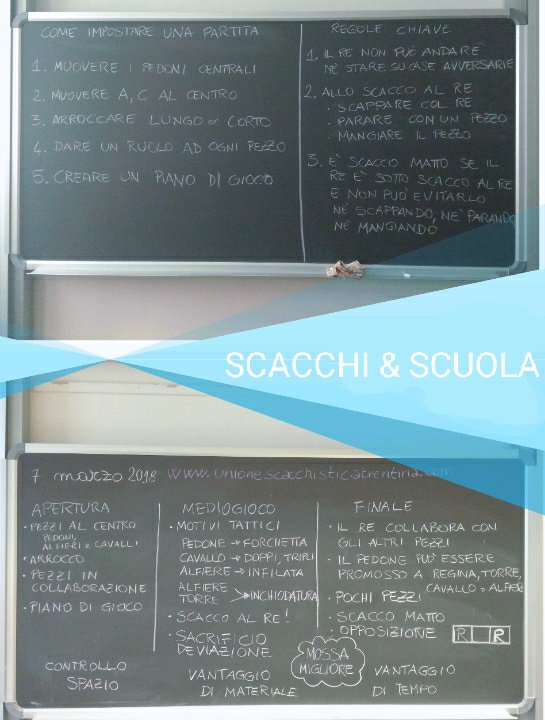 COME IMPOSTARE UNA PARTITA
1. MUOVERE I PEDONI CENTRALI
2. MUOVERE A, C AL CENTRO
3. ARROCCARE LUNGO or CORTO
4. DARE UN RUOLO AD OGNI PEZZO
5. CREARE UN PIANO DI GIOCO
REGOLE CHIAVE
1. IL RE NON PUÒ ANDARE
NÈ STARE SU CASE AVVERSARIE
2. ALLO SCACCO AL RE:
· SCAPPARE COL RE
· PARARE CON UN PEZZO
· MANGIARE IL PEZZO
3. E' SCACCO MATTO SE IL
RE E' SOTTO SCACCO AL RE
E NON PUO' EVITARLO
NE' SCAPPANDO, NE' PARANDO
NE' MANGIANDO
SCACCHI & SCUOLA
7 marzo 2018 www.unionescacchisticatrentina.com
APERTURA
· PEZZI AL CENTRO
PEDONI,
ALFIERI e CAVALLI
· ARROCCO
· PEZZI IN
COLLABORAZIONE
· PIANO DI GIOCO
CONTROLLO
SPAZIO
MEDIOGIOCO
· MOTIVI TATTICI
PEDONE → FORCHETTA
CAVALLO → DOPPI, TRIPLI
ALFIERE → INFILATA
ALFIERE
TORRE > INCHIODATURA
· SCACCO AL RE!
· SACRIFICIO
DEVIAZIONE
VANTAGGIO
DI MATERIALE
MOSSA
MIGLIORE
FINALE
· IL RE COLLABORA CON
GLI ALTRI PEZZI
· IL PEDONE PUO' ESSERE
PROMOSSO A REGINA, TORRE,
CAVALLO o ALFIERE
· POCHI PEZZI
· SCACCO MATTO
· OPPOSIZIONE R R
VANTAGGIO
DI TEMPO